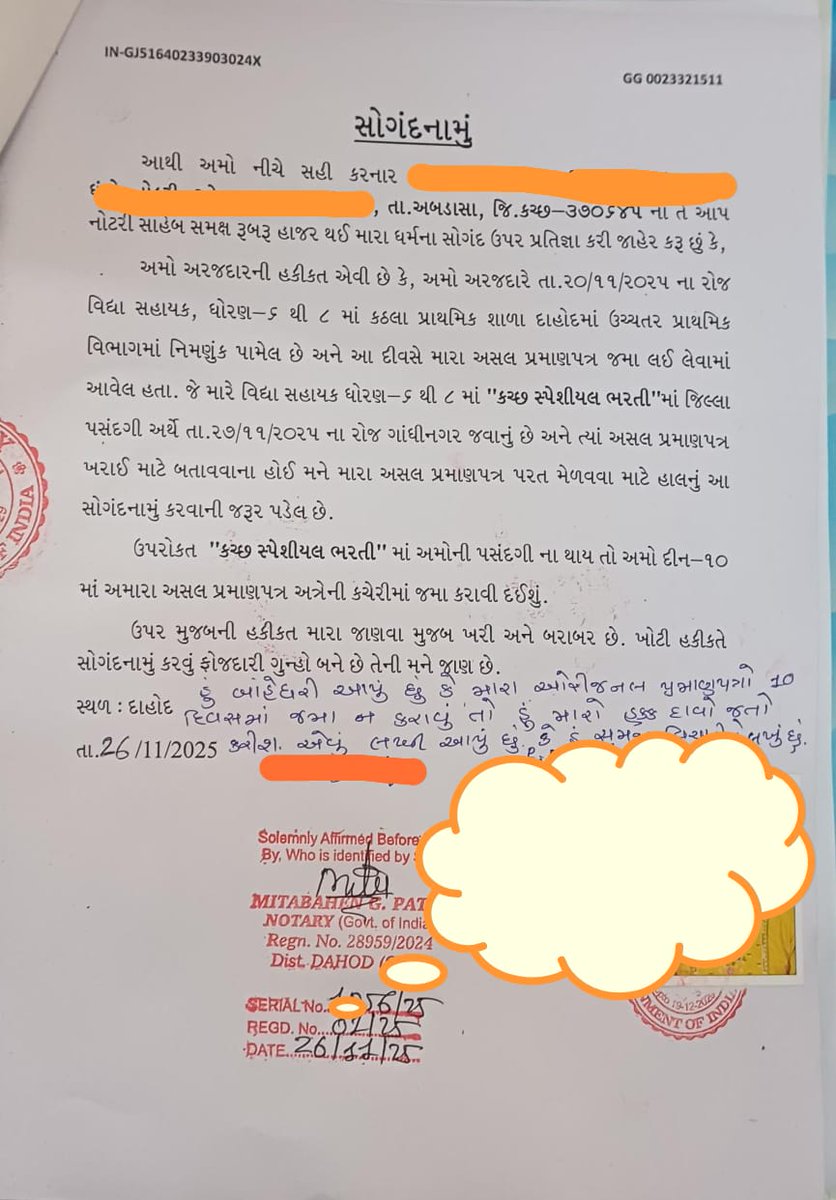 IN-GJ51640233903024X
GG 0023321511
સોગંદનામું
આથી અમો નીચે સહી કરનાર
, તા.અબડાસા, જિ.કચ્છ–૩૭૦૬૪૫ ના તે આપ
નોટરી સાહેબ સમક્ષ રૂબરૂ હાજર થઈ મારા ધર્મના સોગંદ ઉપર પ્રતિજ્ઞા કરી જાહેર કરૂ છું કે,
અમો અરજદારની હકીકત એવી છે કે, અમો અરજદારે તા.૨૦/૧૧/૨૦૨૫ ના રોજ
વિદ્યા સહાયક, ધોરણ–૬ થી ૮ માં કઠલા પ્રાથમિક શાળા દાહોદમાં ઉચ્ચતર પ્રાથમિક
વિભાગમાં નિમણુંક પામેલ છે અને આ દીવસે મારા અસલ પ્રમાણપત્ર જમા લઈ લેવામાં
આવેલ હતા. જે મારે વિદ્યા સહાયક ધોરણ–૬ થી ૮ માં "કચ્છ સ્પેશીયલ ભરતી"માં જિલ્લા
પસંદગી અર્થે તા.૨૭/૧૧/૨૦૨૫ ના રોજ ગાંધીનગર જવાનું છે અને ત્યાં અસલ પ્રમાણપત્ર
ખરાઈ માટે બતાવવાના હોઈ મને મારા અસલ પ્રમાણપત્ર પરત મેળવવા માટે હાલનું આ
સોગંદનામું કરવાની જરૂર પડેલ છે.
ઉપરોકત "કચ્છ સ્પેશીયલ ભરતી" માં અમોની પસંદગી ના થાય તો અમો દીન–૧૦
માં અમારા અસલ પ્રમાણપત્ર અત્રેની કચેરીમાં જમા કરાવી દઈશું.
ઉપર મુજબની હકીકત મારા જાણવા મુજબ ખરી અને બરાબર છે. ખોટી હકીકતે
સોગંદનામું કરવું ફોજદારી ગુન્હો બને છે તેની મને જાણ છે.
હું બાંહેધરી આપું છું કે મારા ઓરીજનલ પ્રમાણપત્રો 10
સ્થળ : દાહોદ દિવસમાં જમા ન કરાવું તો હું મારો હક્ક દાવો જતો
તા.26/11/2025 કરીશ. એવું લખી આપું છું. કે હું લખું છું.
Solemnly Affirmed Before
By, Who is identified by
MITABAHEN G. PAT
NOTARY (Govt. of India
Regn. No. 28959/2024
Dist. DAHOD
SERIAL No. 56/25
REGD. No. 01/25
DATE 26/11/25
INDIA
MENT OF INDIA